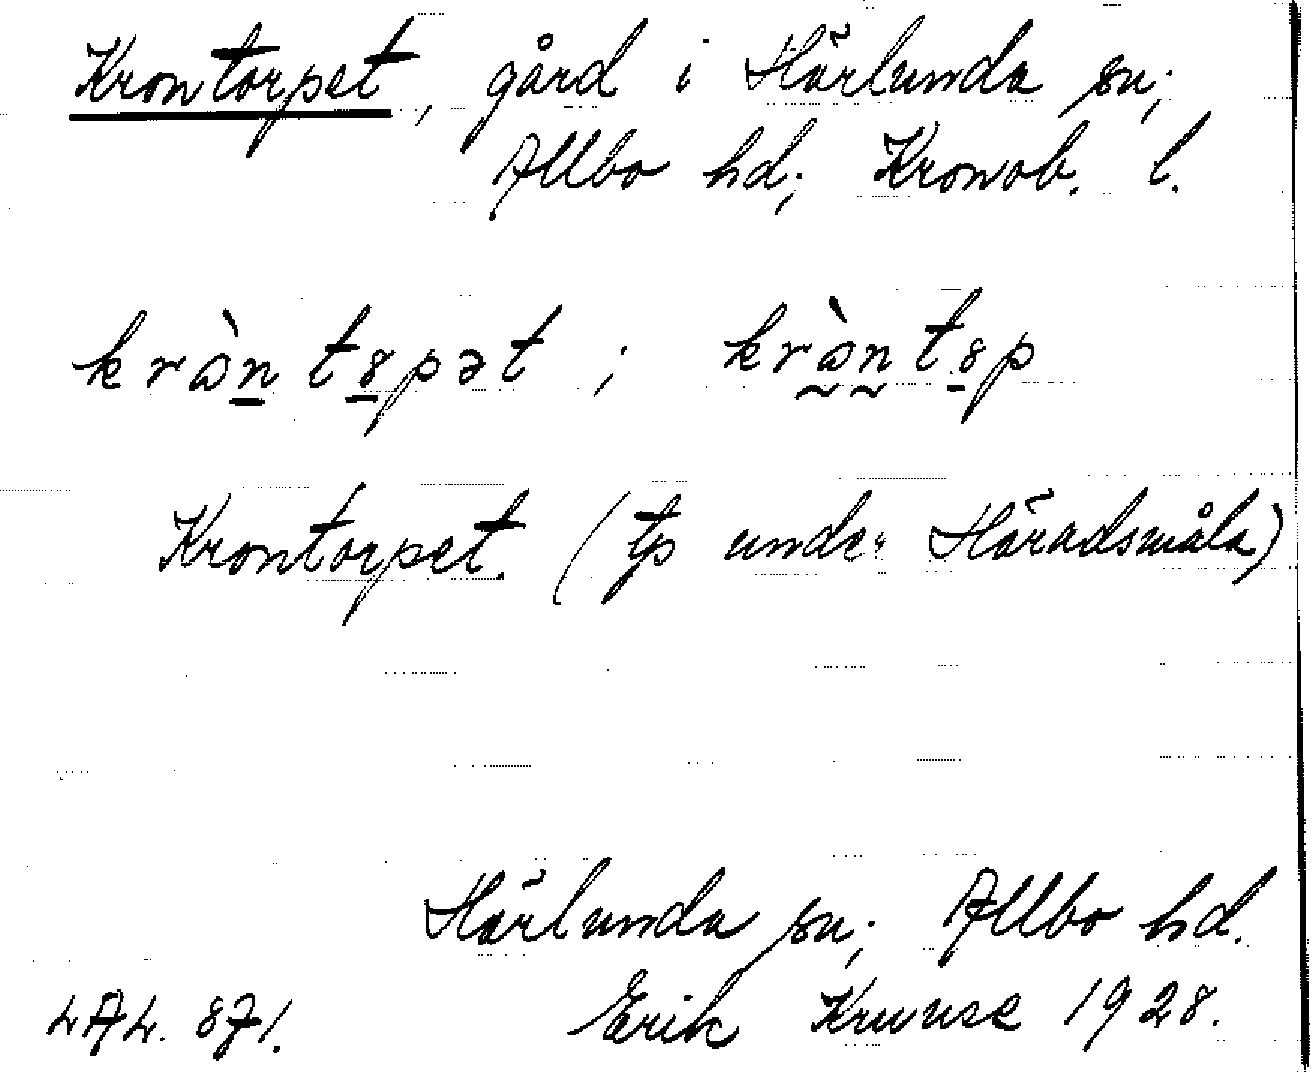 Krontorpet, gård i Härlunda sn;
Allbo hd; Kronob. l.
kràntꝸpət ; kràntꝸp
Krontorpet. (tp under Häradsmåla)
Härlunda sn; Allbo hd.
LAL. 871. Erik Kruuse 1928.